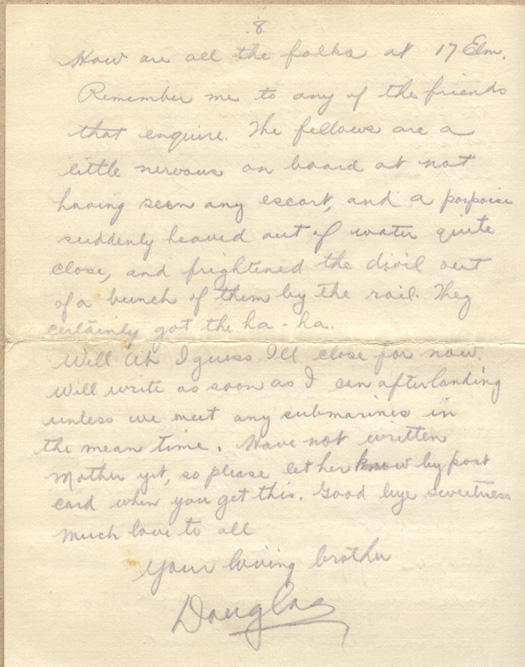 8
How are all the folks at 17 Elm.
Remember me to any of the friends
that enquire. The fellows are a
little nervous on board at not
having seen any escort, and a porpoise
suddenly heaved out of water quite
close, and frightened the divil out
of a bunch of them by the rail. They
certainly got the ha-ha.
Will I guess I'll close for now.
Will write as soon as I can after landing
unless we meet any submarines in
the mean time. Have not written
Mother yet, so please let her know by post
card when you get this. Good bye sweetness
Much love to all
Your loving brother
Douglas